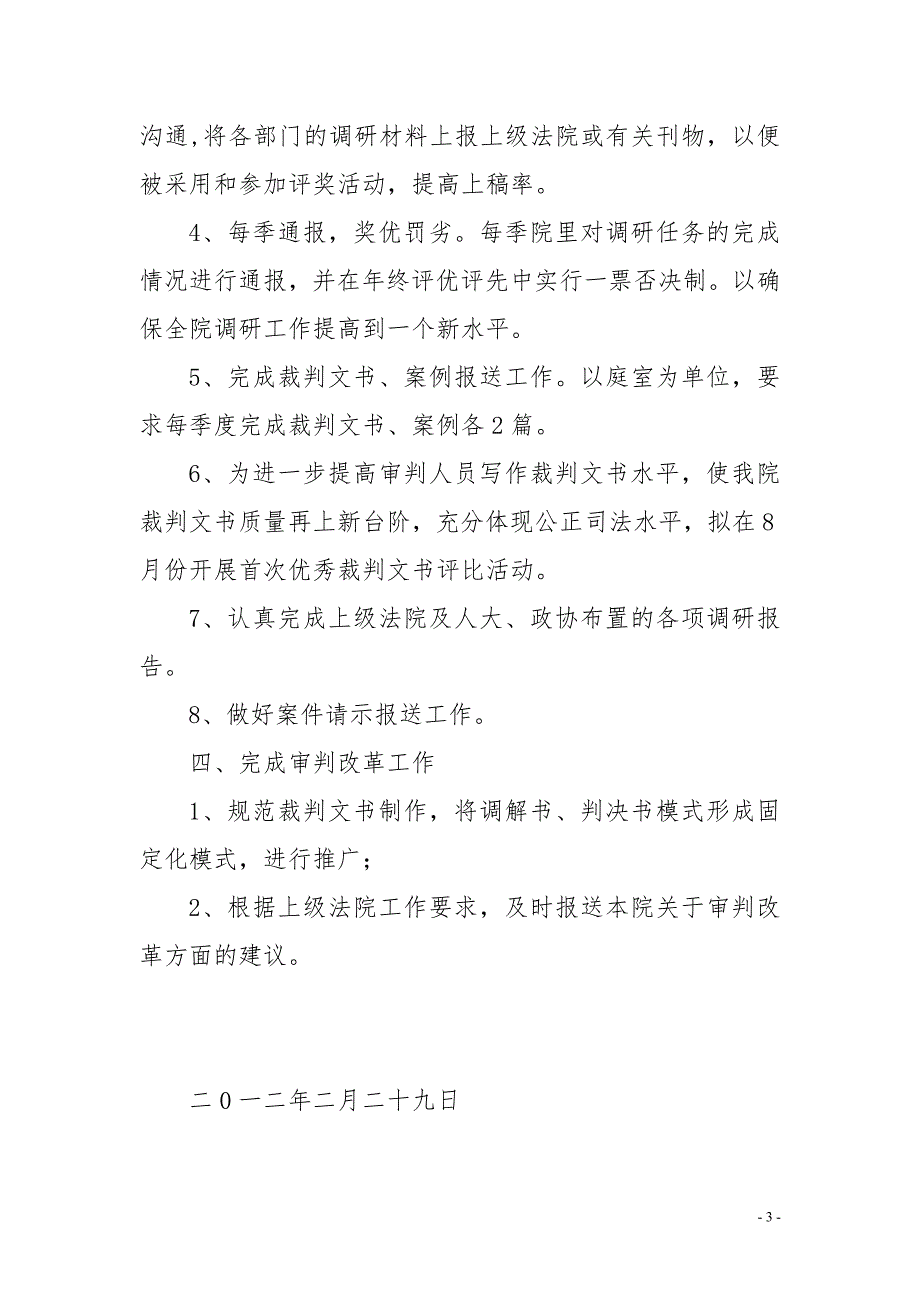 沟通,将各部门的调研材料上报上级法院或有关刊物，以便
被采用和参加评奖活动，提高上稿率。
4、每季通报，奖优罚劣。每季院里对调研任务的完成
情况进行通报，并在年终评优评先中实行一票否决制。以确
保全院调研工作提高到一个新水平。
5、完成裁判文书、案例报送工作。以庭室为单位，要
求每季度完成裁判文书、案例各2篇。
6、为进一步提高审判人员写作裁判文书水平，使我院
裁判文书质量再上新台阶，充分体现公正司法水平，拟在8
月份开展首次优秀裁判文书评比活动。
7、认真完成上级法院及人大、政协布置的各项调研报
告。
8、做好案件请示报送工作。
四、完成审判改革工作
1、规范裁判文书制作，将调解书、判决书模式形成固
定化模式，进行推广；
2、根据上级法院工作要求，及时报送本院关于审判改
革方面的建议。
二0一二年二月二十九日
- 3 -